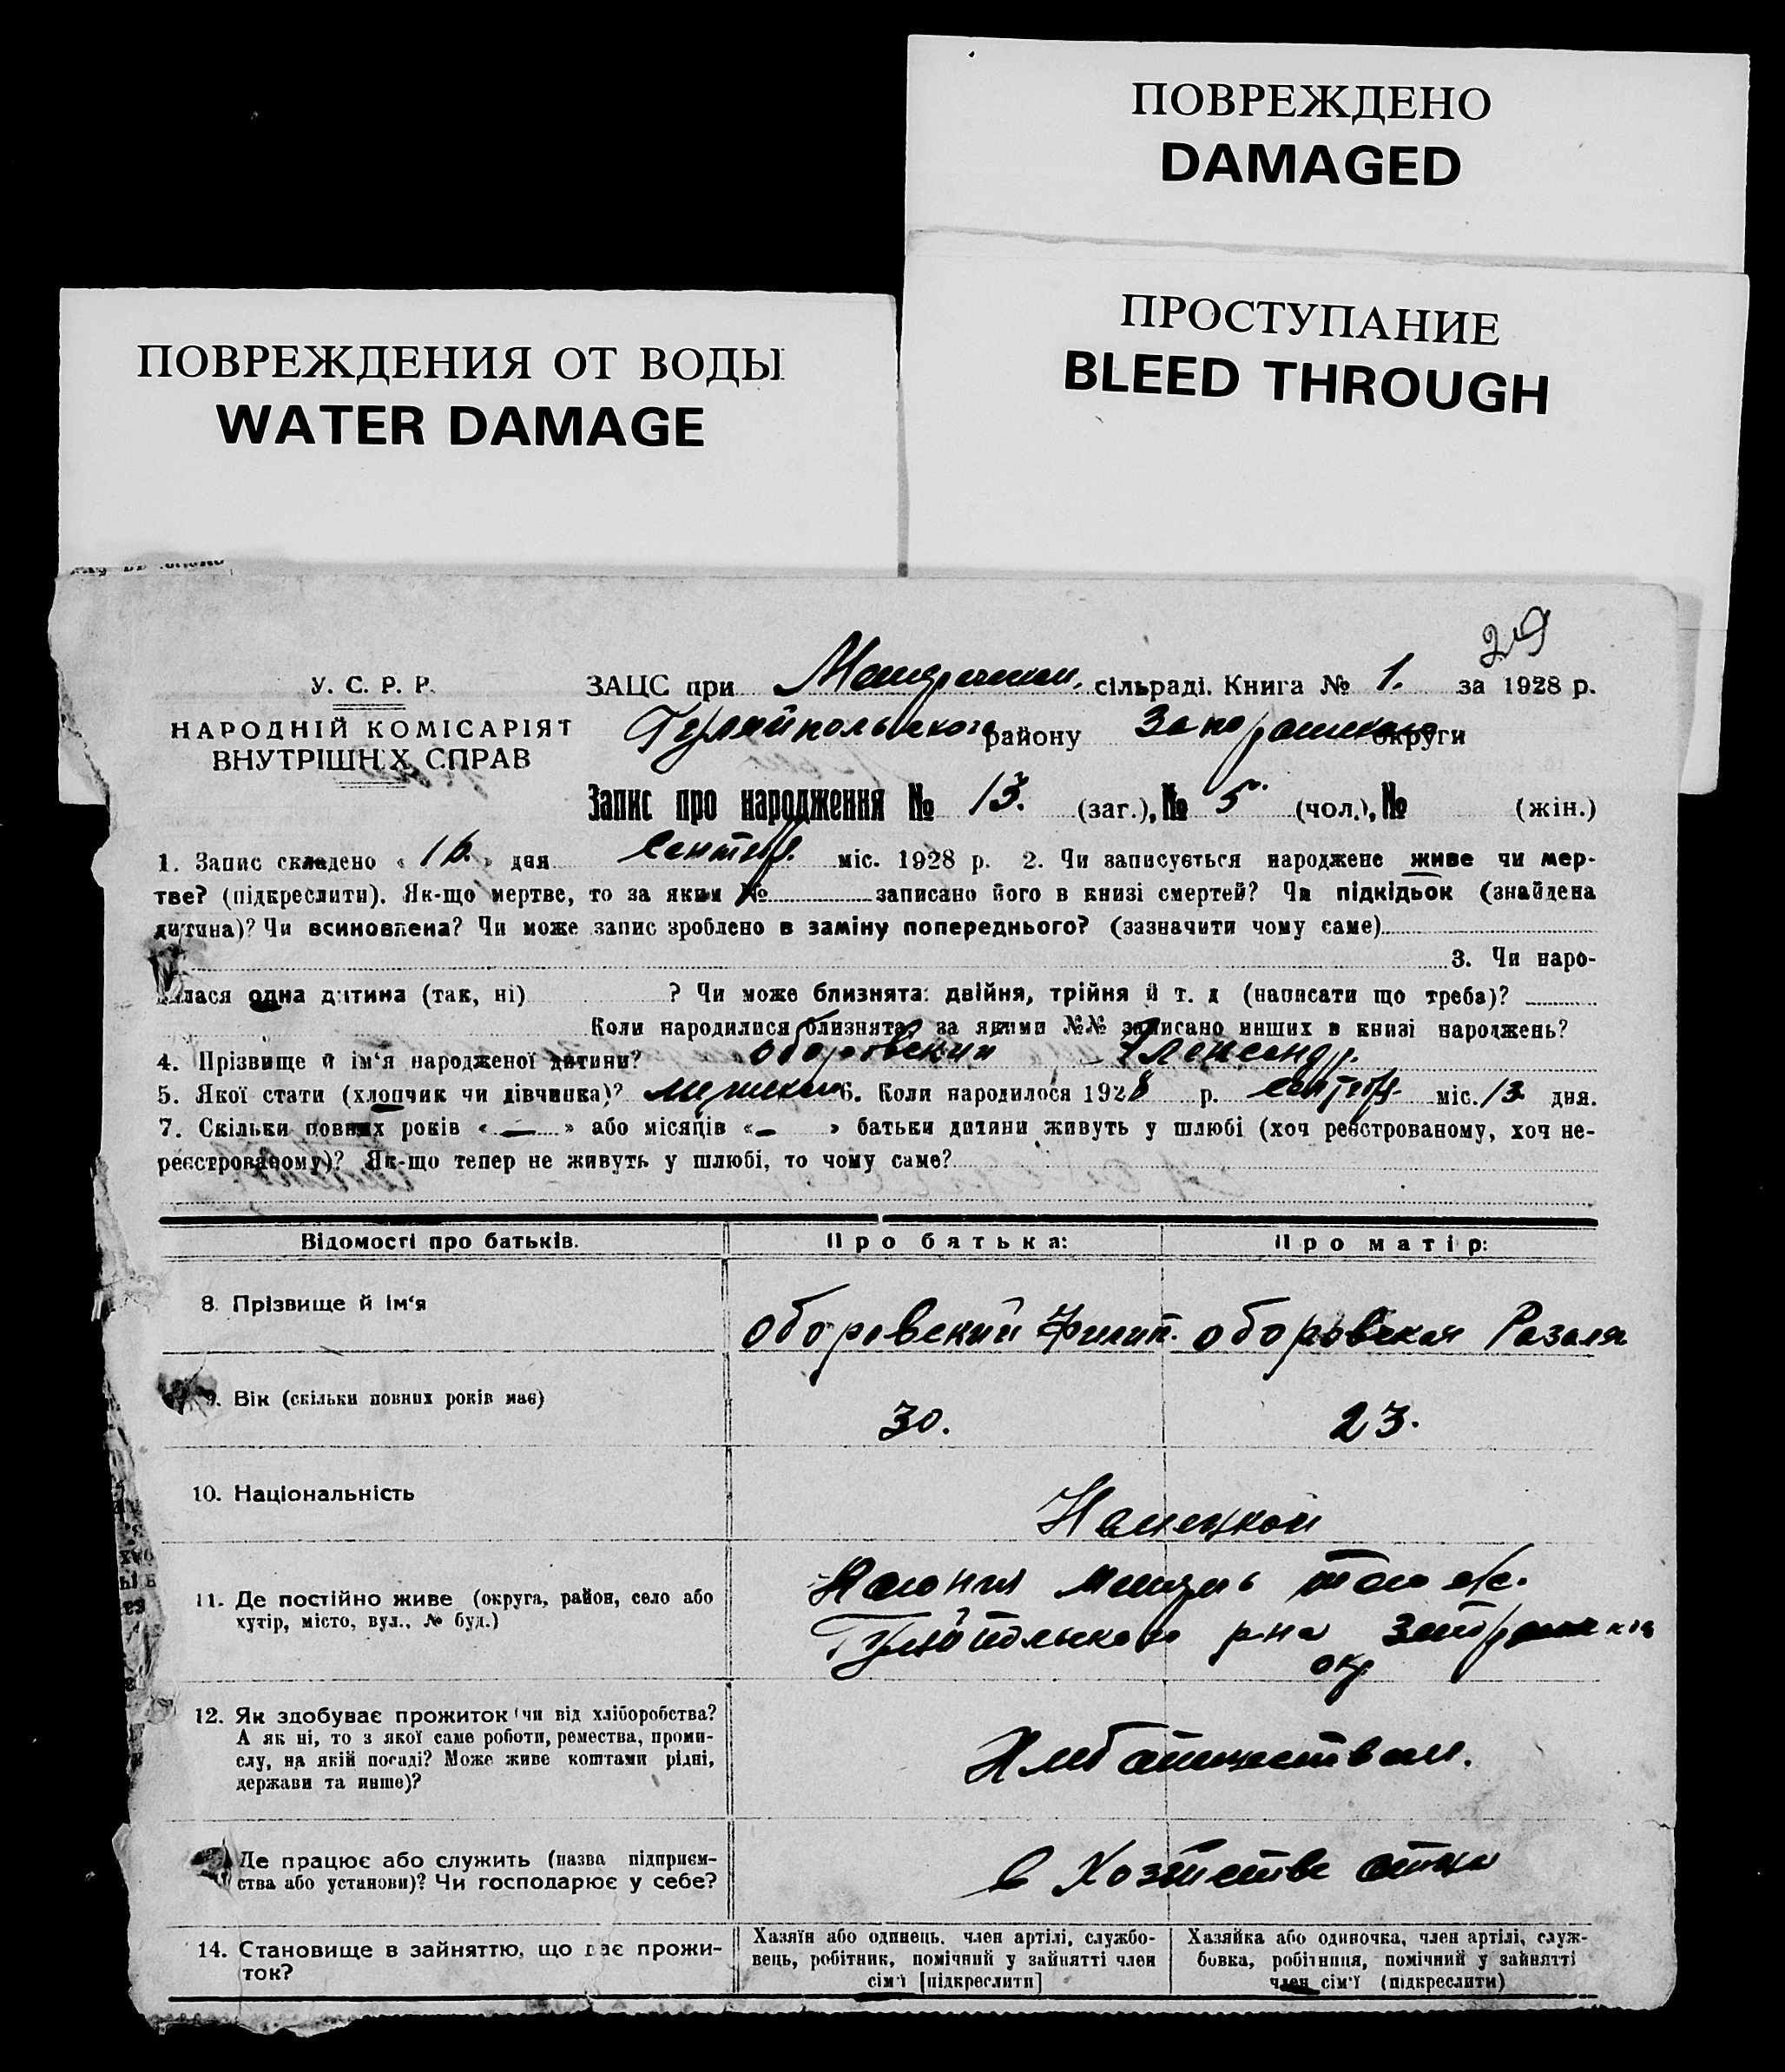 ПОВРЕЖДЕНО
DAMAGED
ПРОСТУПАНИЕ
BLEED THROUGH
ПОВРЕЖДЕНИЯ ОТ ВОДЫ
WATER DAMAGE
29
У. С. Р. Р.
НАРОДНІЙ КОМІСАРІЯТ
ВНУТРІШН Х СПРАВ
ЗАЦС при сільраді. Книга № 1. за 1928 р.
Гуляйпольского району Запорошского округи
Запис про народження № 13. (заг.), № 5 (чол.), № (жін.)
1. Запис складено « 16. » дня Сентяб. міс. 1928 р. 2. Чи записується народжене живе чи мер-
тве? (підкреслити). Як-що мертве, то за яким № записано його в книзі смертей? Чи підкідьок (знайдена
дитина)? Чи всиновлена? Чи може запис зроблено в заміну попереднього? (зазначити чому саме)
3. Чи наро-
лася одна дитина (так, ні) ? Чи може близнята: двійня, трійня й т. д (написати що треба)?
Коли народилися близнята, за якими №№ записано инших в книзі народжень?
4. Прізвище й ім‘я народженої дитини? Оборовский Александр.
5. Якої статі (хлопчик чи дівчинка)? мужской 6. Коли народилося 1928 р. сентяб. міс. 13 дня.
7. Скільки повних років « — » або місяців « — » батьки дитини живуть у шлюбі (хоч реєстрованому, хоч не-
реєстрованому)? Як-що тепер не живуть у шлюбі, то чому саме?
Відомості про батьків. Про батька: Про матір:
8. Прізвище й ім‘я Оборовский Филип. Оборовская Розаля
9. Вік (скільки повних років має) 30. 23.
10. Національність Немецкой
11. Де постійно живе (округа, район, село або
хутір, місто, вул., № буд.)
Колония
Гуляйпольского рна
окр
12. Як здобуває прожиток (чи від хліборобства?
А як ні, то з якої саме роботи, ремества, проми-
слу, на якій посаді? Може живе коштами рідні,
держави та инше)?
Хлебопашеством.
Де працює або служить (назва підприєм-
ства або установи)? Чи господарює у себе?
в Хозяйстве отца
14. Становище в зайняттю, що дає прожи-
ток?
Хазяїн або одинець, член артілі, службо-
вець, робітник, помічний у зайнятті член
сім‘ї [підкреслити]
Хазяйка або одиночка, член артілі, служ-
бовка, робітниця, помічний у зайнятті
член сім‘ї (підкреслити)